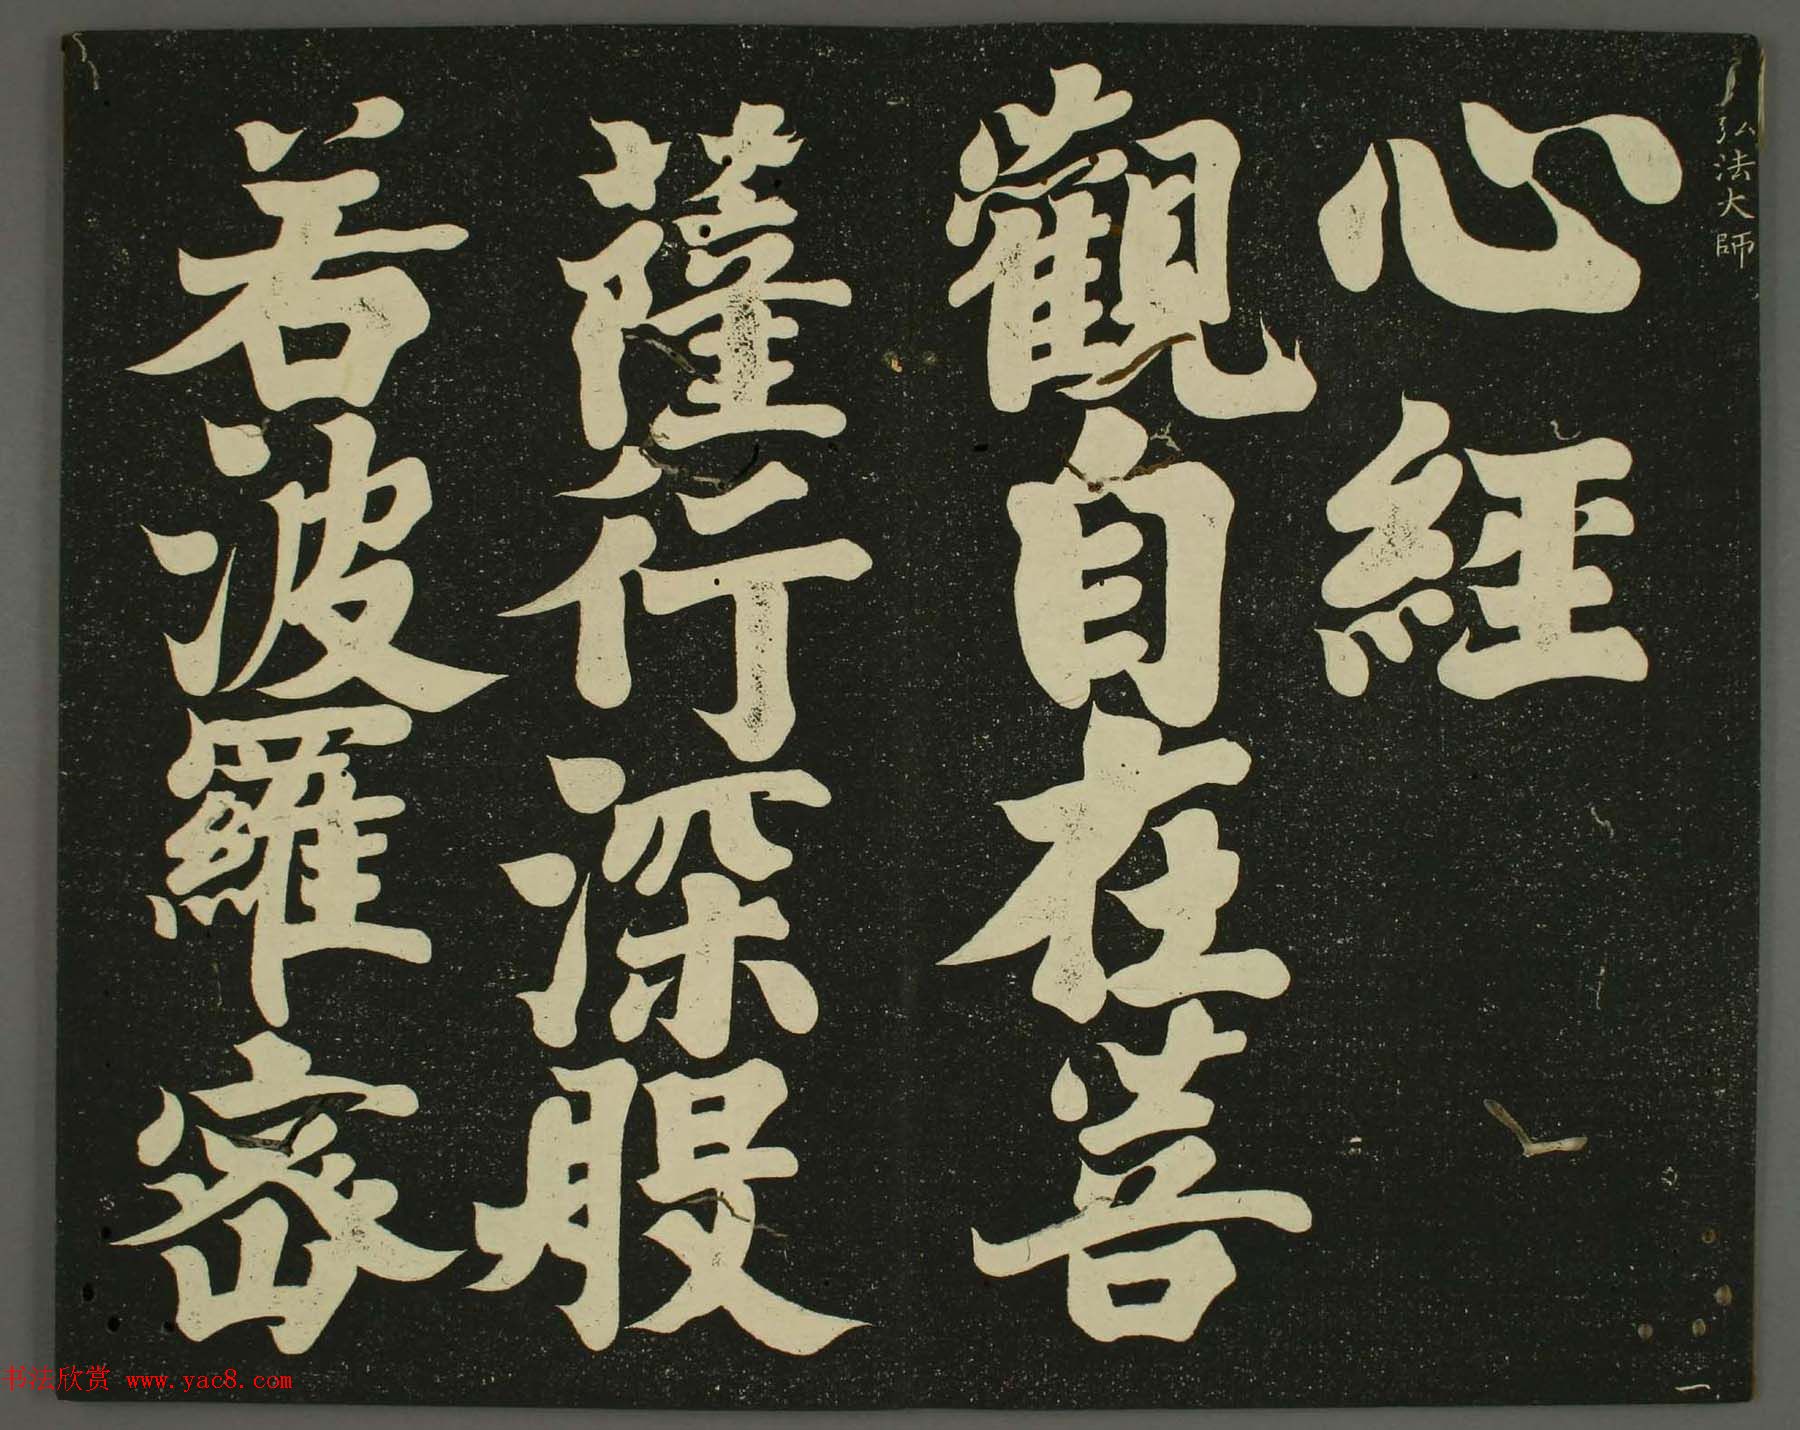 弘法大師
心經
觀自在菩
薩行深股
若波羅密
一
书法欣赏 www.yac8.com